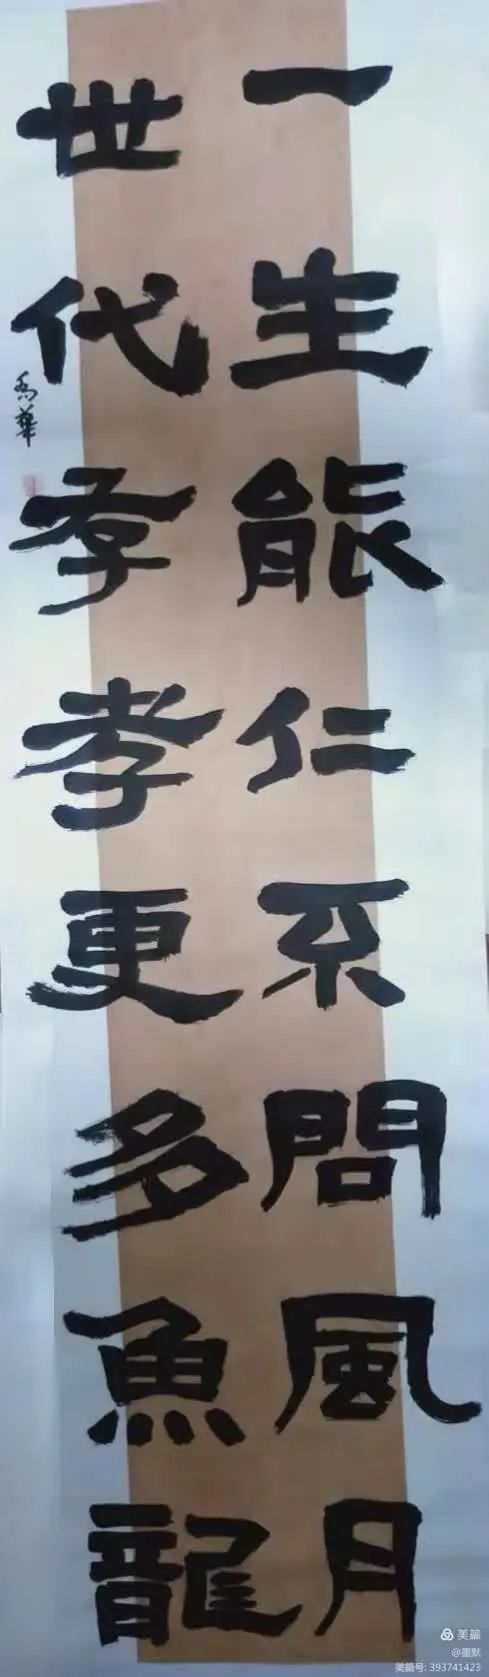 一生能仁不問風月
世代存孝更多魚龍
華
美篇
@墨默
美篇号: 393741423